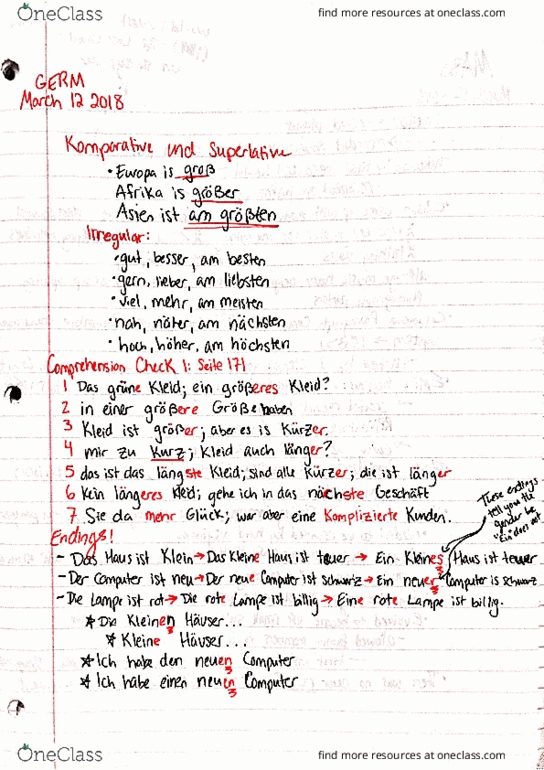 OneClass
find more resources at oneclass.com
GERM
March 12 2018
Komparative und Superlative
• Europa is groß
Afrika is größer
Asien ist am größten
Irregular:
• gut, besser, am besten
• gern, lieber, am liebsten
• viel, mehr, am meisten
• nah, näher, am nächsten
• hoch, höher, am höchsten
Comprehension Check 1: Seite 171
1 Das grüne Kleid; ein größeres Kleid?
2 in einer größere Größe haben
3 Kleid ist größer; aber es is Kürzer.
4 mir zu Kurz; Kleid auch länger?
5 das ist das längste Kleid; sind alle Kürzer; die ist länger
6 Kein längeres Kleid; gehe ich in das nächste Geschäft
7. Sie da mehr Glück; war aber eine Komplizierte Kunden.
These endings
tell you the
gender bc
"Ein does not
Endings!
- Das Haus ist Klein → Das Kleine Haus ist teuer → Ein Kleines Haus ist teuer
- Der Computer ist neu → Der neue Computer ist schwarz → Ein neuer Computer is schwarz
- Die Lampe ist rot → Die rote Lampe ist billig → Eine rote Lampe ist billig.
* Die Kleinen Häuser...
* Kleine Häuser...
* Ich habe den neuen Computer
* Ich habe einen neuen Computer
OneClass
find more resources at oneclass.com